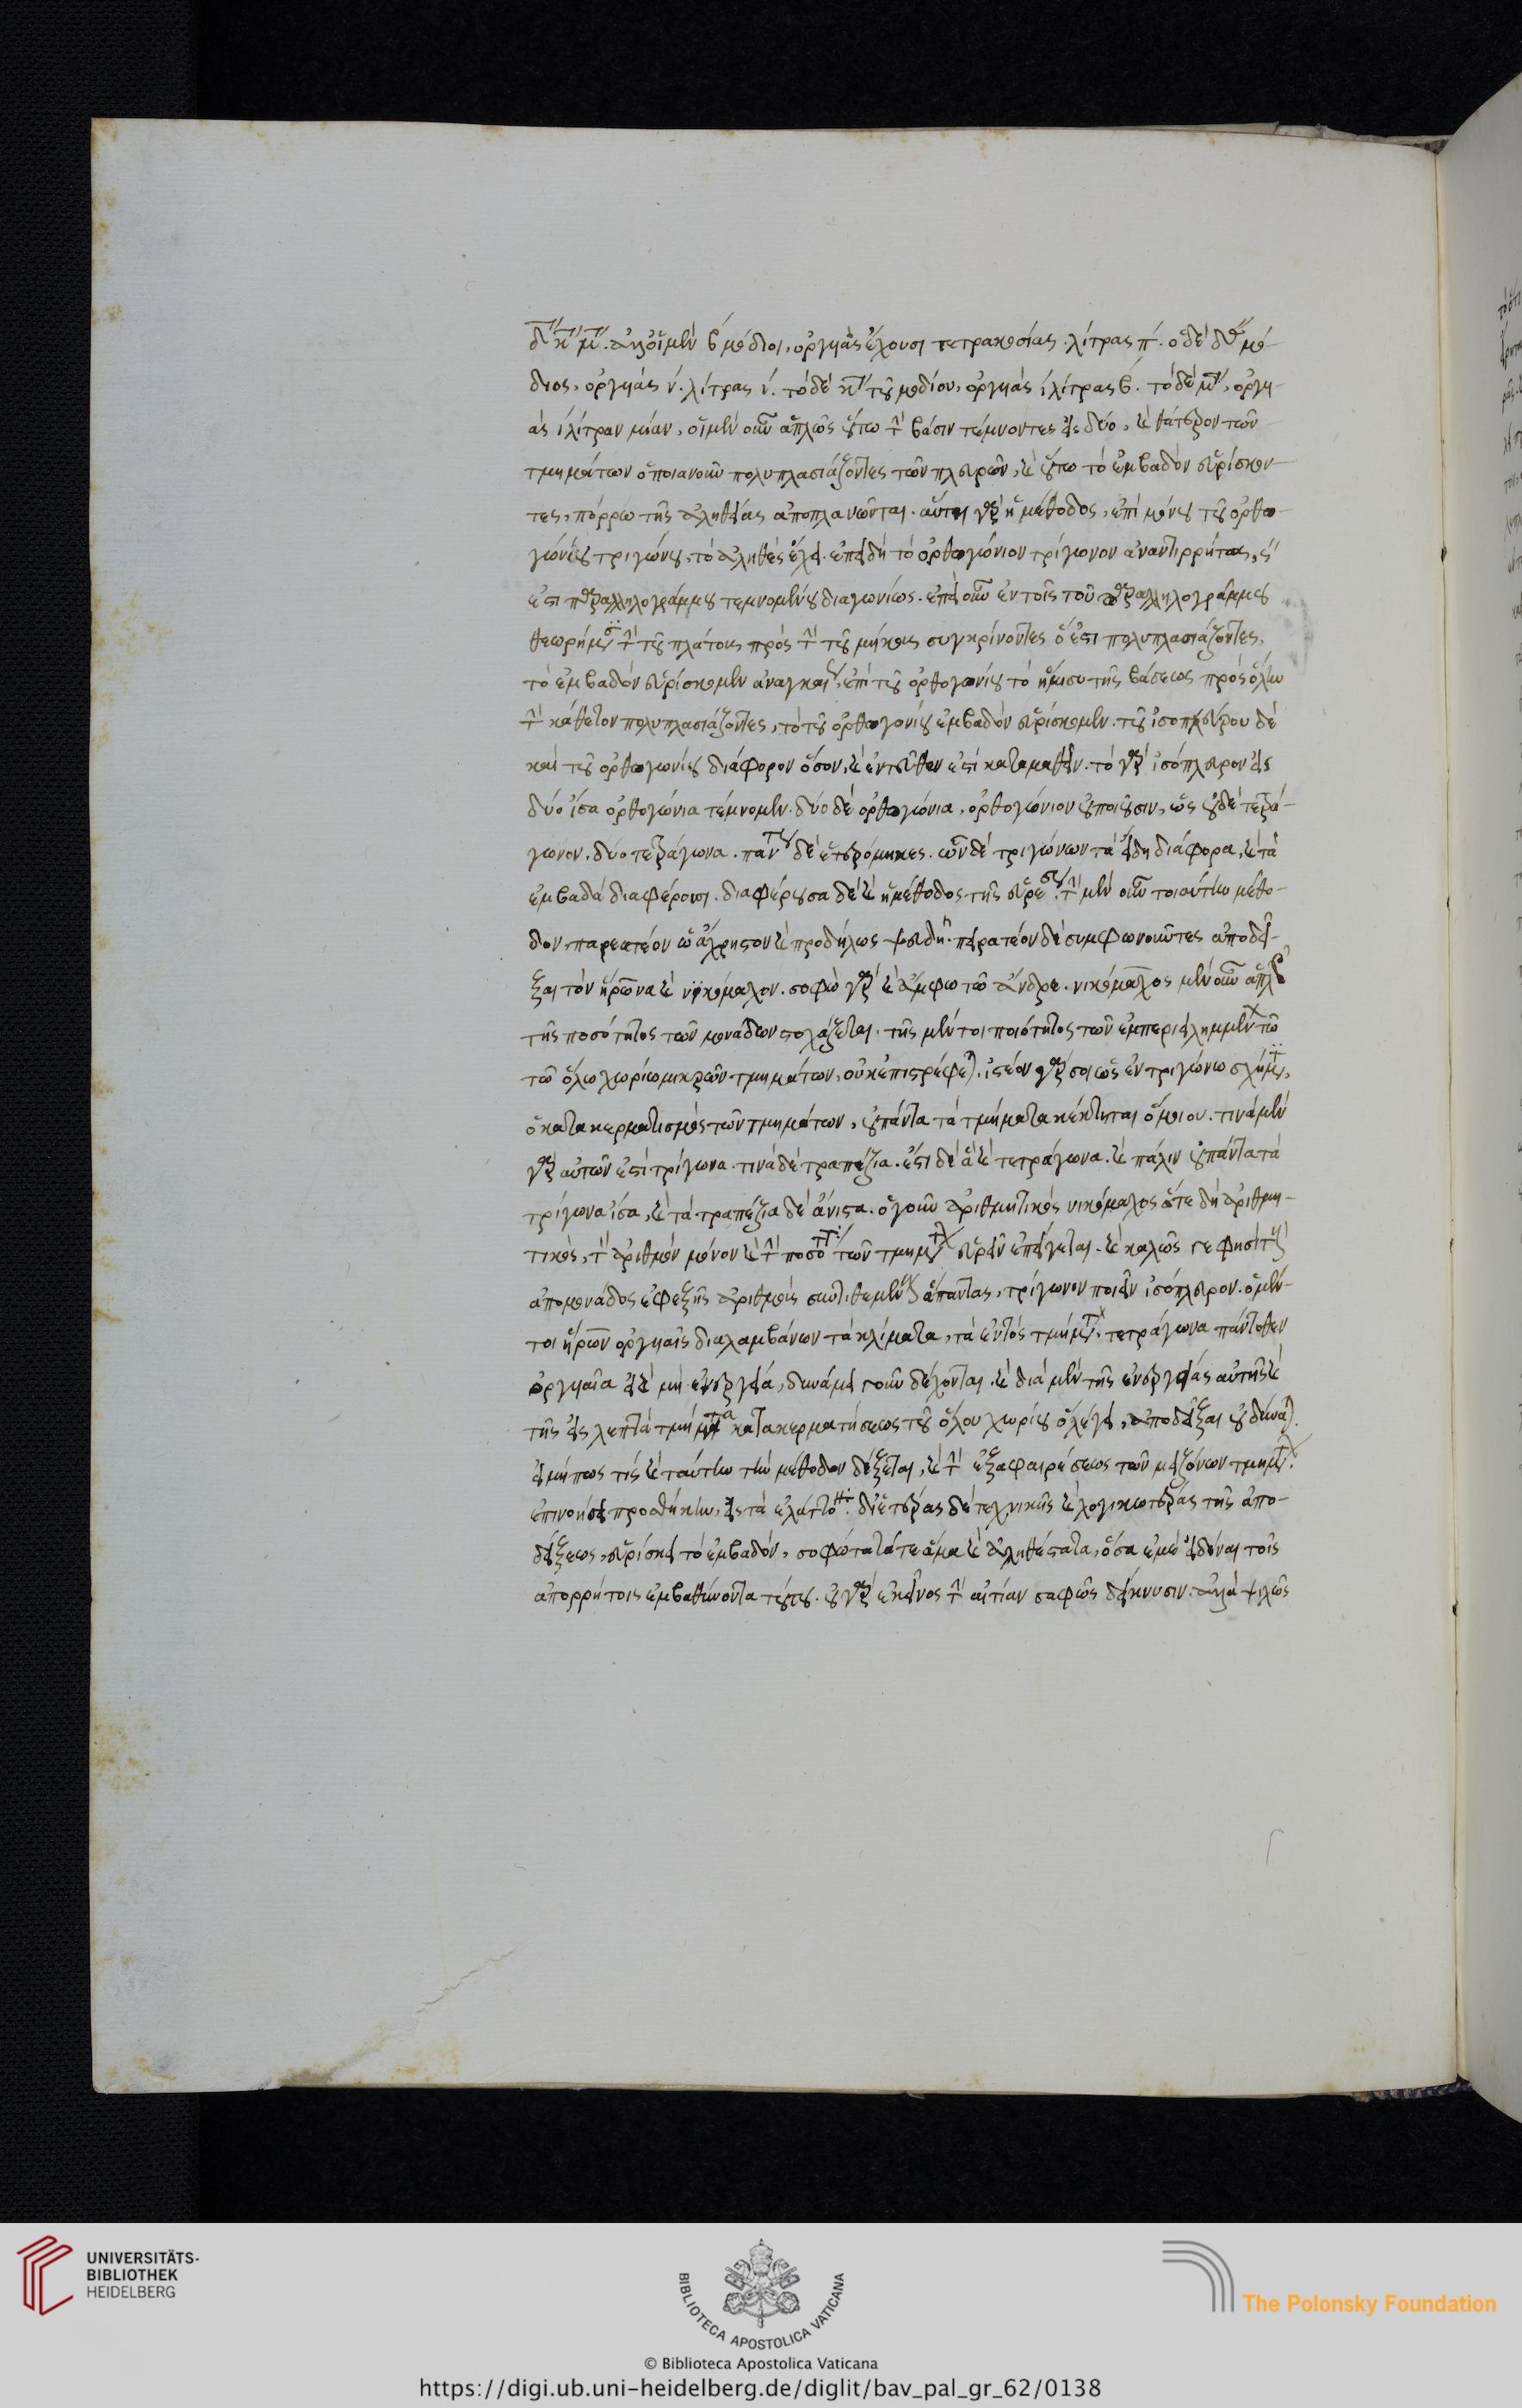 δʹʹ κʹʹ μʹʹ. ἀλλ' οἱ μὲν β μόδιοι, ὀργυιὰς ἔχουσι τετρακοσίας. λίτρας π. ὁ δὲ μό-
διος, ὀργυιὰς ν. λίτρας ν. τὸ δὲ κʹʹ τοῦ μοδίου, ὀργυιὰς λίτρας β. τὸ δὲ μʹʹ, ὀργυι-
ὰν λίτραν μίαν. οἱ μὲν οὖν ἁπλῶς οὕτω τὴν βάσιν τέμνοντες εἰς δύο, καὶ θάτερον τῶν
τμημάτων ὁποιανοῦν πολυπλασιάζοντες τῶν πλευρῶν, καὶ οὕτω τὸ ἐμβαδὸν εὑρίσκον-
τες, πόρρω τῆς ἀληθείας ἀποπλανῶνται. αὕτη γὰρ ἡ μέθοδος, ἐπὶ μόνου τοῦ ὀρθο-
γωνίου τριγώνου, τὸ ἀληθὲς ἔχει. ἐπειδὴ τὸ ὀρθογώνιον τρίγωνον ἀναντιρρήτως,
ἐστι παραλληλογράμμου τεμνομένου διαγωνίως. ἐπεὶ οὖν ἐν τοῖς τοῦ παραλληλογράμμου
τὴν τοῦ πλάτους πρὸς τὴν τοῦ μήκους συγκρίνοντες ὅ ἐστι πολυπλασιάζοντες,
τὸ ἐμβαδὸν εὑρίσκομεν ἀναγκαίως, ἐπὶ τοῦ ὀρθογωνίου τὸ ἥμισυ τῆς βάσεως πρὸς ὅλην
τὴν κάθετον πολυπλασιάζοντες, τὸ τοῦ ὀρθογωνίου ἐμβαδὸν εὑρίσκομεν. τοῦ ἰσοπλεύρου δὲ
καὶ τοῦ ὀρθογωνίου διάφορον ὅσον, καὶ ἐντεῦθεν ἐστὶ καταμαθεῖν. τὸ γὰρ ἰσόπλευρον εἰς
δύο ἴσα ὀρθογώνια τέμνομεν. δύο δὲ ὀρθογώνια, ὀρθογώνιον οὐ ποιοῦσιν, ὡς οὐδὲ τετρά-
γωνον, δύο τετράγωνα. πάντως δὲ ἑτερόμηκες. ὧν δὲ τριγώνων τὰ εἴδη διάφορα, καὶ τὰ
ἐμβαδὰ διαφέρουσι. διαφέρουσα δὲ καὶ ἡ μέθοδος τῆς εὑρέσεως. τὴν μὲν οὖν τοιαύτην μέθο-
δον, παρεατέον ὡς ἄχρηστον καὶ προδήλως ψευδῆ. πειρατέον δὲ συμφωνοῦντας ἀποδεῖ-
ξαι τὸν ἥρωνα καὶ νικόμαχον. σοφὼ γὰρ καὶ ἄμφω τὼ ἄνδρε. νικόμαχος μὲν οὖν ἁπλῶς
τῆς ποσότητος τῶν μονάδων στοχάζεται. τῆς μέντοι ποιότητος τῶν ἐμπεριειλημμένων
τῶ ὅλω χωρίω μικρῶν τμημάτων, οὐκ ἐπιστρέφεται. ἰστέον γάρ σοι ὡς ἐν τριγώνω σχήματι,
ὁ κατακερματισμὸς τῶν τμημάτων, οὐ πάντα τὰ τμήματα κέκτηται ὅμοιον. τινὰ μὲν
γὰρ αὐτῶν ἐστὶ τρίγωνα. τινὰ δὲ τραπέζια. ἔστι δὲ ἃ καὶ τετράγωνα. καὶ πάλιν οὐ πάντα τὰ
τρίγωνα ἴσα, καὶ τὰ τραπέζια δὲ ἄνισα. ὁ γοῦν ἀριθμητικὸς νικόμαχος ἅτε δὴ ἀριθμη-
τικὸς, τὸν ἀριθμὸν μόνον καὶ τὴν ποσότητα τῶν τμημάτων εὑρεῖν ἐπείγεται. καὶ καλῶς γε φησὶ τοὺς
ἀπὸ μονάδος ἐφεξῆς ἀριθμοὺς συντιθεμένους ἅπαντας, τρίγωνον ποιεῖν ἰσόπλευρον. ὁ μέν-
τοι ἥρων ὀργυιαῖς διαλαμβάνων τὰ κλίματα, τὰ ἐντὸς τμήματα τετράγωνα πάντοθεν
ὀργυιαῖα εἰ καὶ μὴ ἐνεργείᾳ, δυνάμει γοῦν δέχονται. καὶ διὰ μὲν τῆς ἐνεργείας αὐτῆς καὶ
τῆς εἰς λεπτὰ τμήματα κατακερματήσεως τοῦ ὅλου χωρίου ὃ λέγει, ἀποδεῖξαι οὐ δύναται.
εἰ μήπως τίς καὶ ταύτην τὴν μέθοδον δέξεται, καὶ τὴν ἐξ ἀφαιρέσεως τῶν μειζόνων τμημάτων
ἐπινοήσει προσθήκην, εἰς τὰ ἐλάττονα. δι' ἑτέρας δὲ τεχνικῆς καὶ λογικωτέρας τῆς ἀπο-
δείξεως, εὑρίσκει τὸ ἐμβαδόν, σοφώτατά τε ἅμα καὶ ἀληθέστατα, ὅσα ἐμὲ εἰδέναι τοῖς
ἀπορρήτοις ἐμβαθύνοντα τούτοις. οὐ γὰρ ἐκεῖνος τὴν αἰτίαν σαφῶς δείκνυσιν. ἀλλὰ ψιλῶς
UNIVERSITÄTS-
BIBLIOTHEK
HEIDELBERG
BIBLIOTECA APOSTOLICA VATICANA
The Polonsky Foundation
© Biblioteca Apostolica Vaticana
https://digi.ub.uni-heidelberg.de/diglit/bav_pal_gr_62/0138